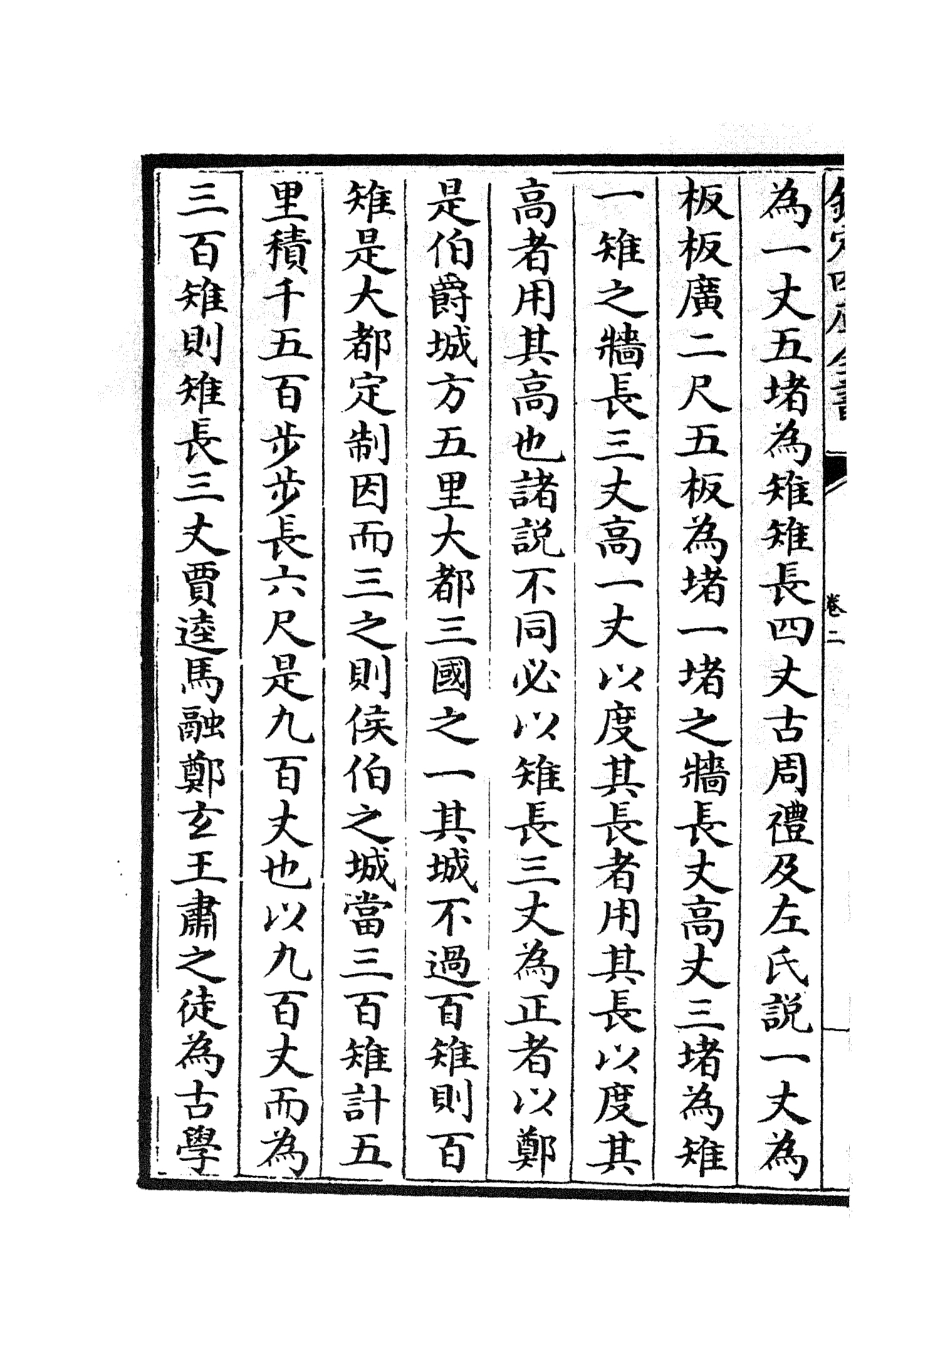 欽定四庫全書
卷二
為一丈五堵為雉雉長四丈古周禮及左氏説一丈為
板板廣二尺五板為堵一堵之牆長丈高丈三堵為雉
一雉之牆長三丈高一丈以度其長者用其長以度其
高者用其高也諸説不同必以雉長三丈為正者以鄭
是伯爵城方五里大都三國之一其城不過百雉則百
雉是大都定制因而三之則侯伯之城當三百雉計五
里積千五百步步長六尺是九百丈也以九百丈而為
三百雉則雉長三丈賈逵馬融鄭玄王肅之徒為古學